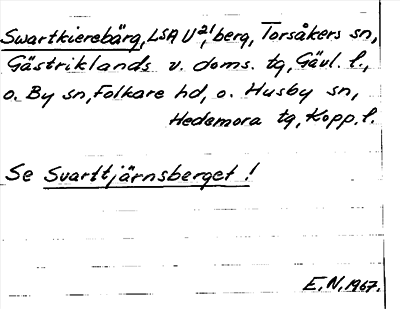 Swartkierebärg, LSA U²¹, berg, Torsåkers sn,
Gästriklands v. doms. tg, Gävl. l.,
o. By sn, Folkare hd, o. Husby sn,
Hedemora tg, Kopp. l.
Se Svarttjärnsberget !
E.N. 1967.